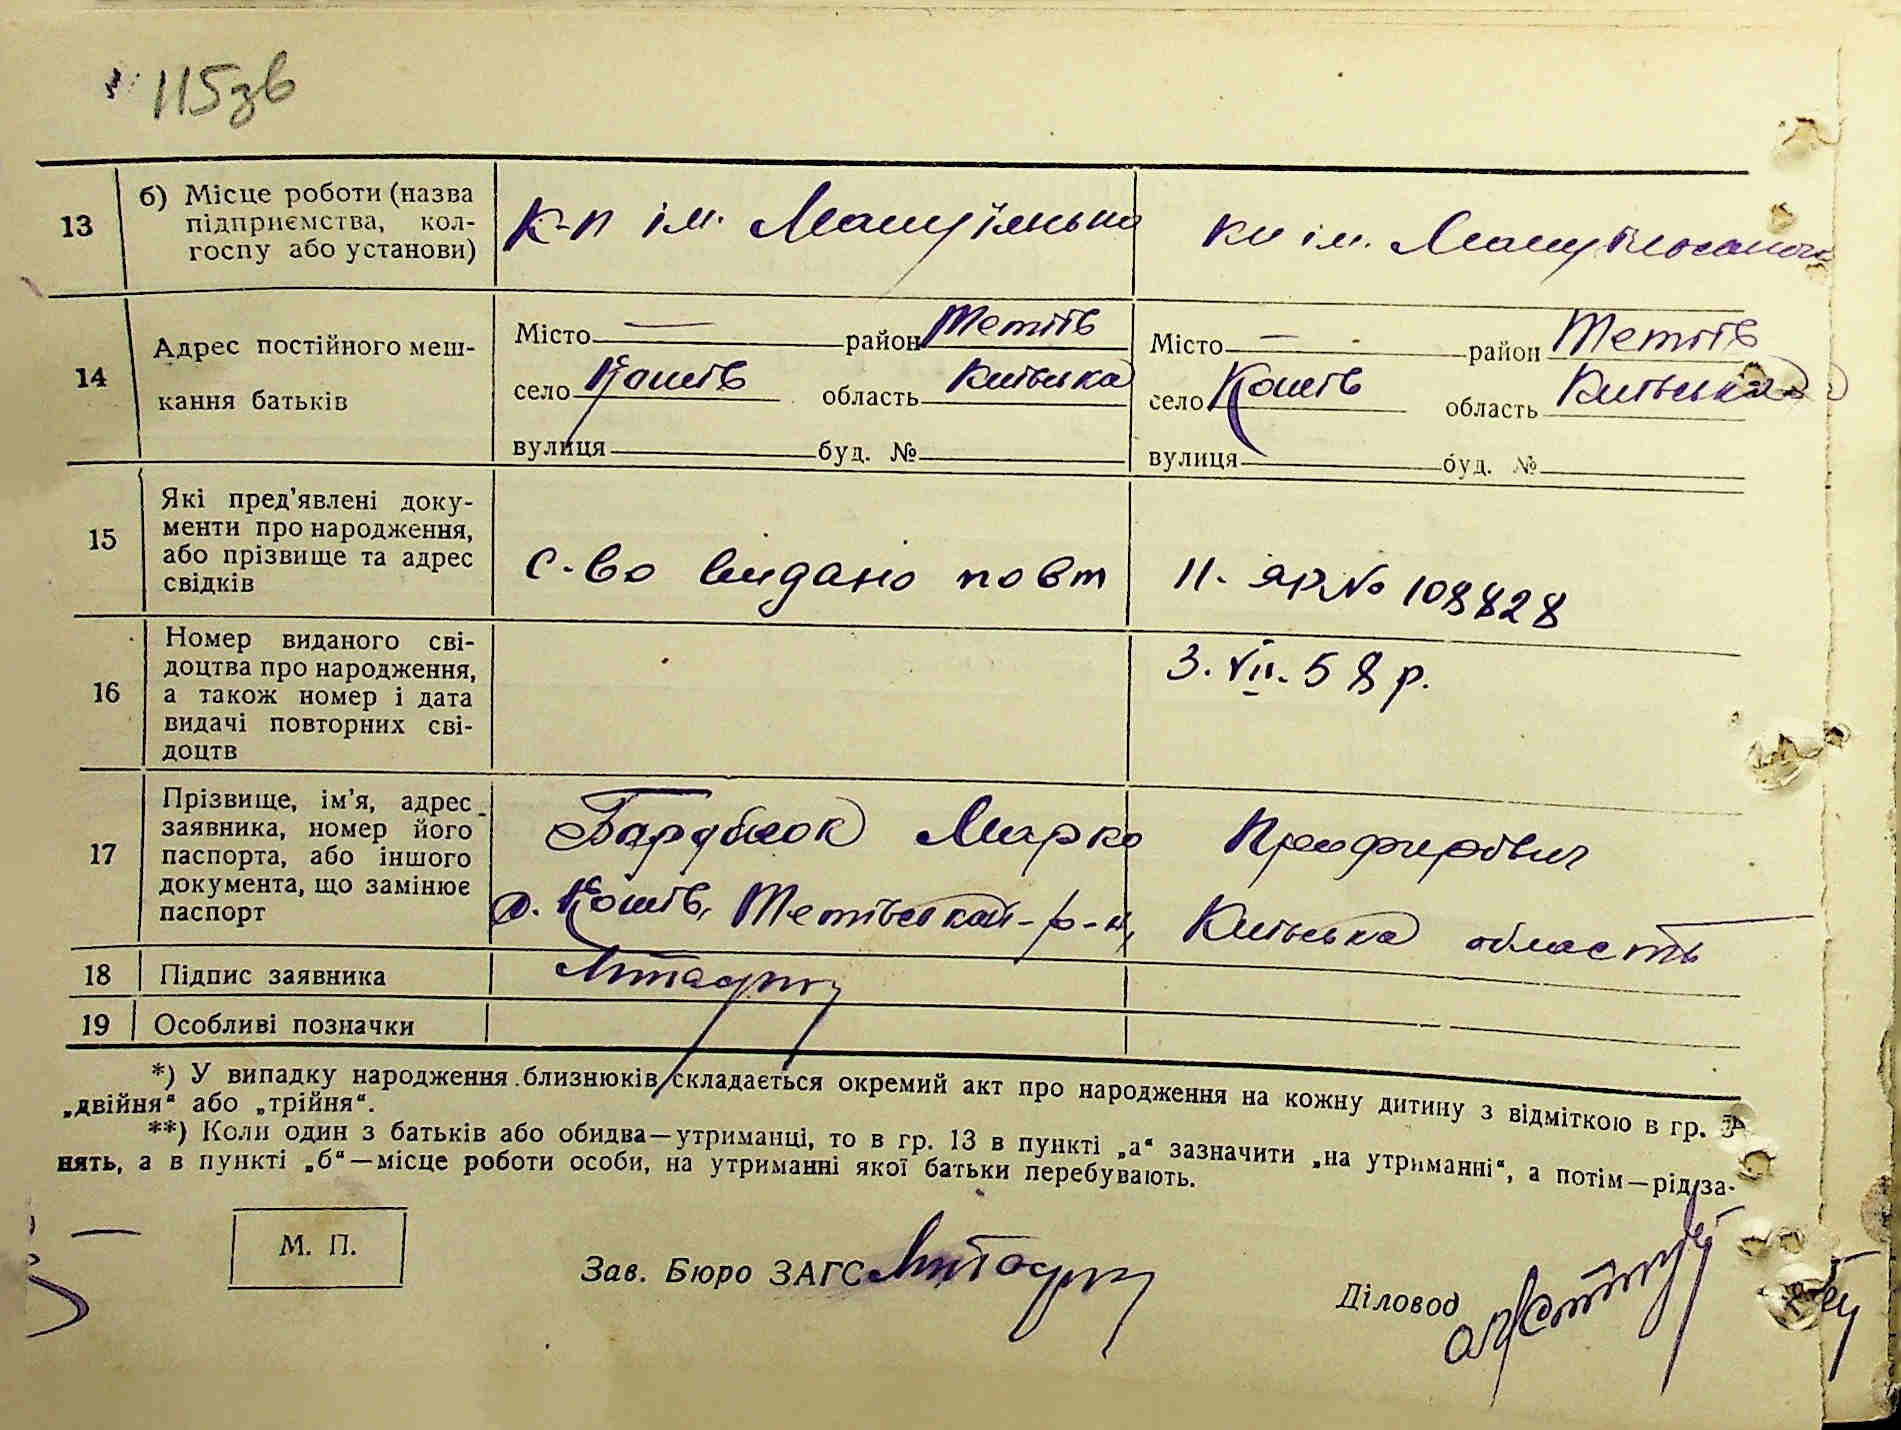 115зв
13
б) Місце роботи (назва
підприємства, кол-
госпу або установи)
к-п ім. Мануїльсько
кп ім. Мануїльського
14
Адрес постійного меш-
кання батьків
Місто — район Тетіїв
село Кошів область Київська
вулиця буд. №
Місто — район Тетіїв
село Кошів область Київська
вулиця буд. №
15
Які пред'явлені доку-
менти про народження,
або прізвище та адрес
свідків
с-во видано повт
II-ЯР № 108828
16
Номер виданого сві-
доцтва про народження,
а також номер і дата
видачі повторних сві-
доцтв
3.VII.58 р.
17
Прізвище, ім'я, адрес
заявника, номер його
паспорта, або іншого
документа, що замінює
паспорт
Барубіок Марко
с. Кошів, Тетіївський р-н, Київська область
18
Підпис заявника
19
Особливі позначки
*) У випадку народження близнюків складається окремий акт про народження на кожну дитину з відміткою в гр. 3
„двійня“ або „трійня“.
**) Коли один з батьків або обидва—утриманці, то в гр. 13 в пункті „а“ зазначити „на утриманні“, а потім—рід за-
нять, а в пункті „б“—місце роботи особи, на утриманні якої батьки перебувають.
М. П.
Зав. Бюро ЗАГС
Діловод